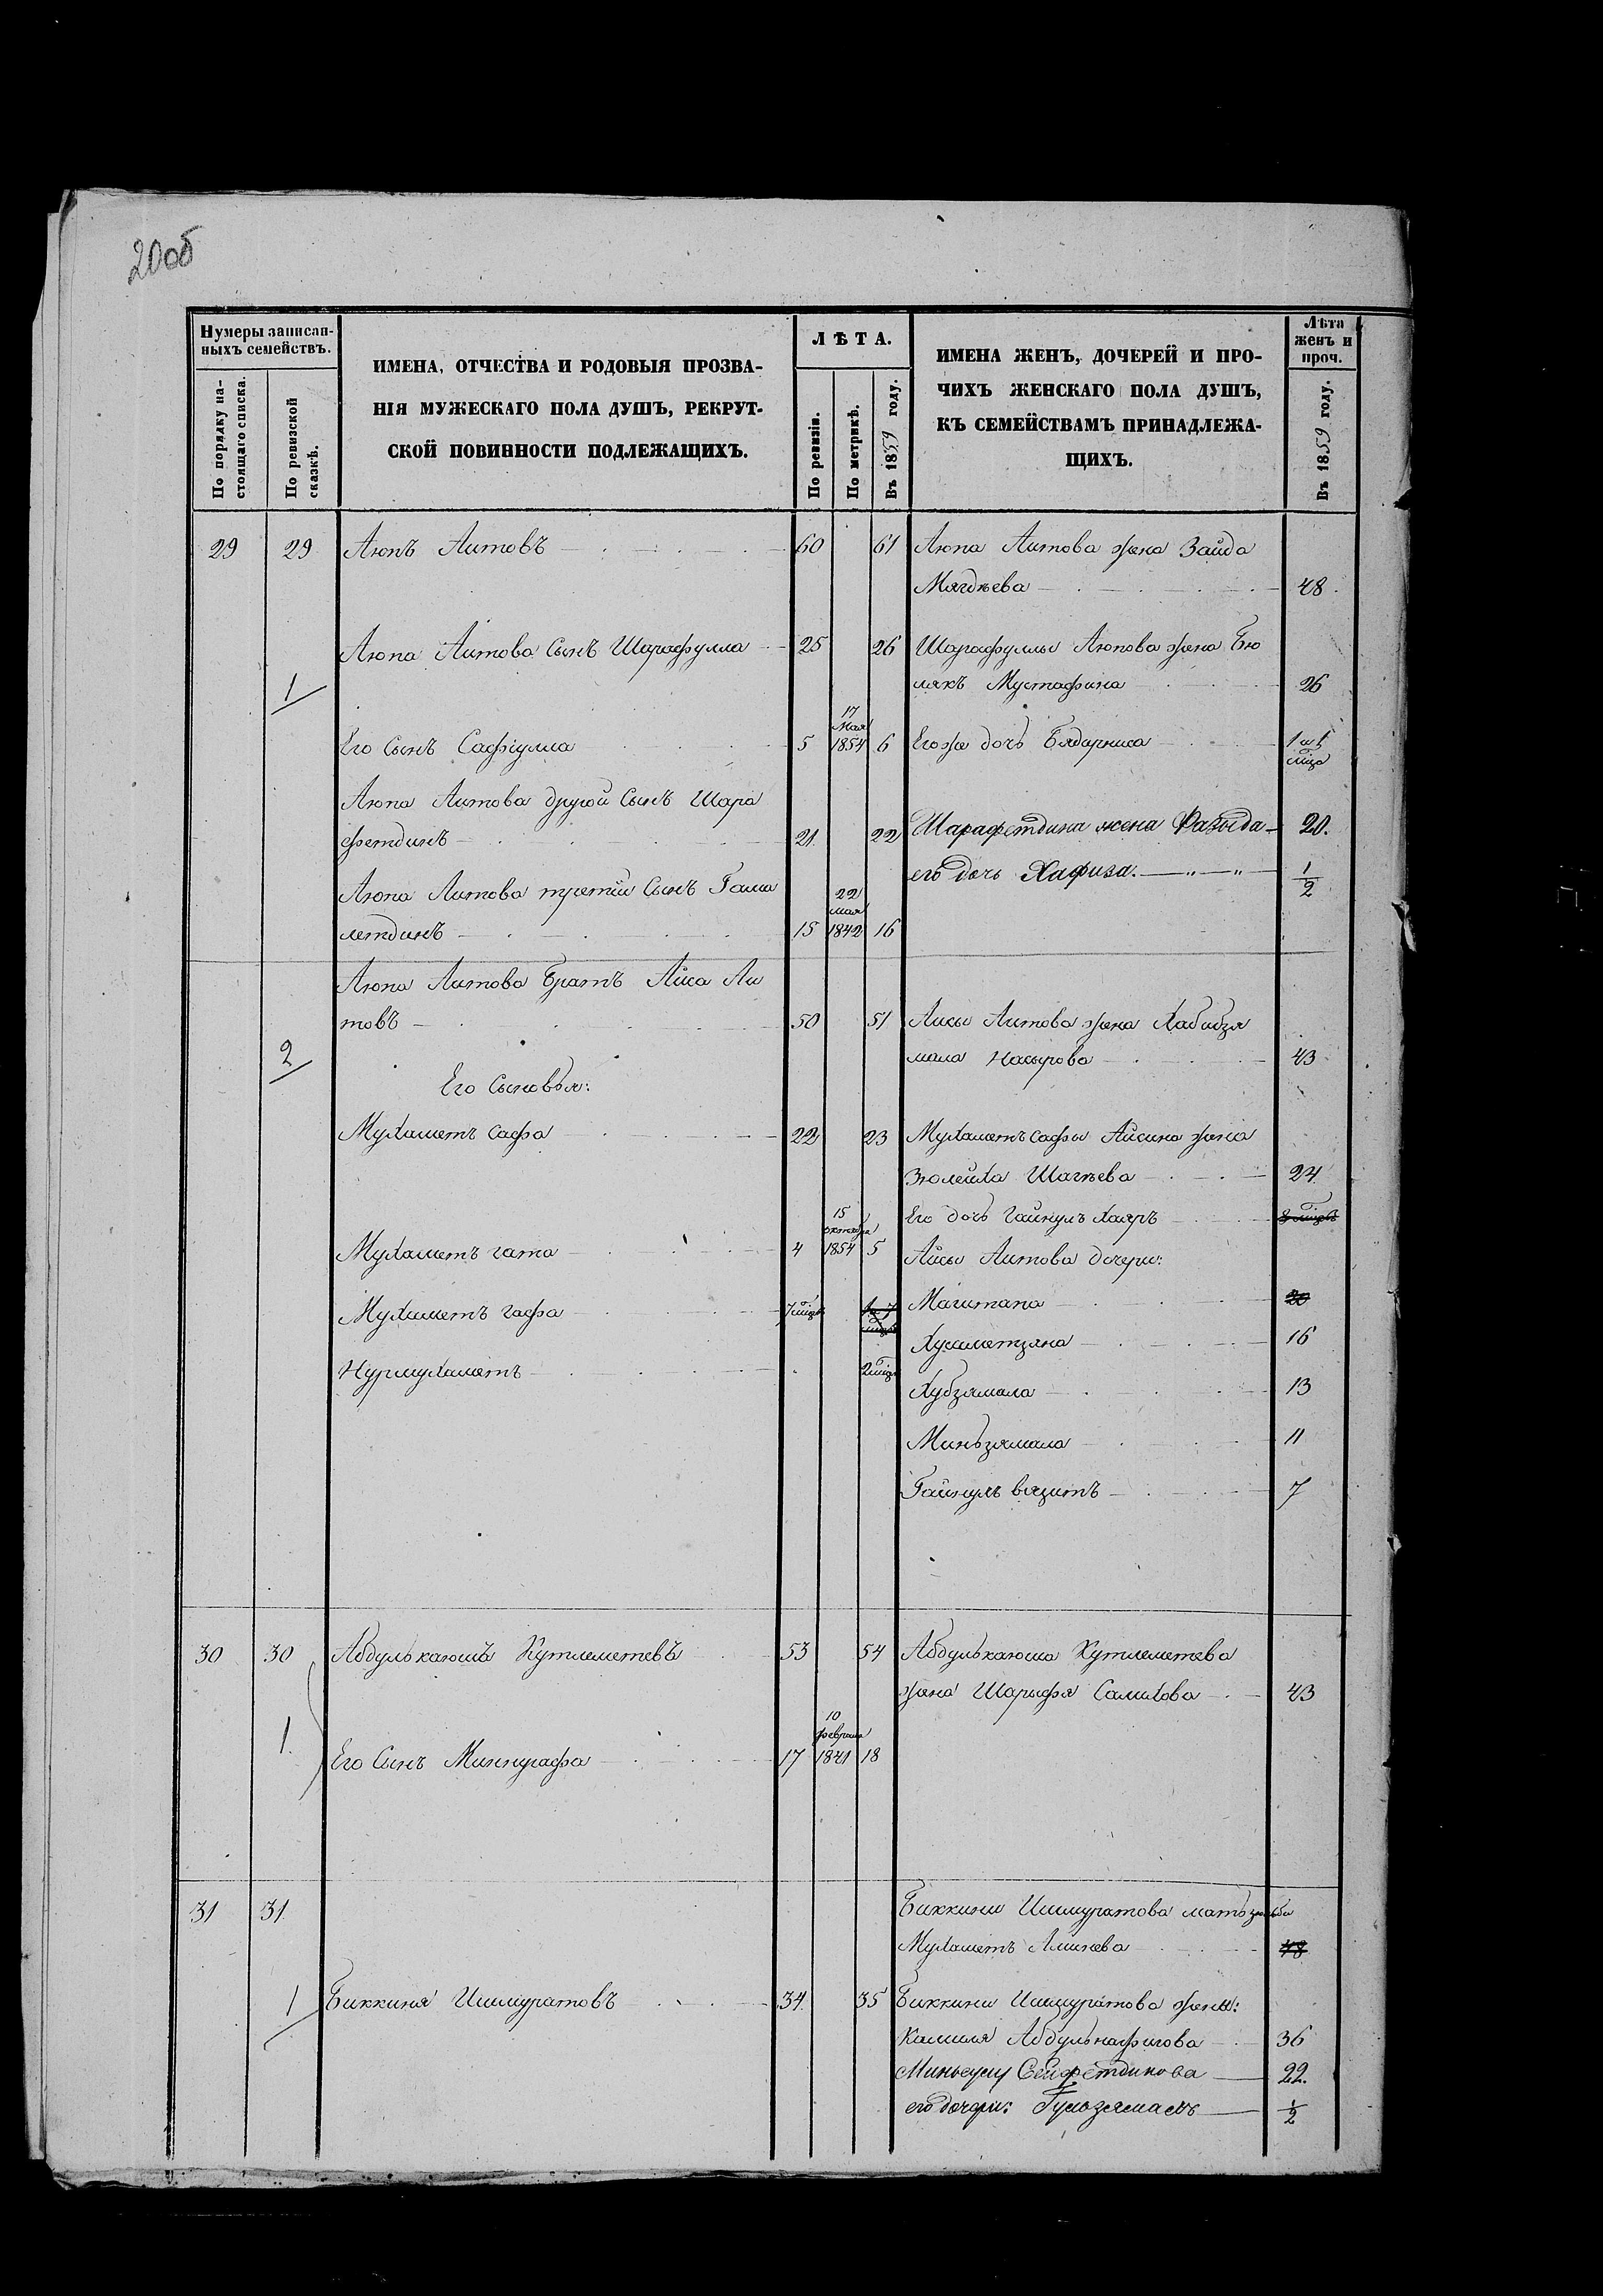 20об
Нумеры записан-
ныхъ семействъ.
По порядку на-
стоящаго списка.
По ревизской
сказкѣ.
ИМЕНА, ОТЧЕСТВА И РОДОВЫЯ ПРОЗВА-
НІЯ МУЖЕСКАГО ПОЛА ДУШЪ, РЕКРУТ-
СКОЙ ПОВИННОСТИ ПОДЛЕЖАЩИХЪ.
ЛѢТА.
По ревизіи.
По метрикѣ.
Въ 1859 году.
ИМЕНА ЖЕНЪ, ДОЧЕРЕЙ И ПРО-
ЧИХЪ ЖЕНСКАГО ПОЛА ДУШЪ,
КЪ СЕМЕЙСТВАМЪ ПРИНАДЛЕЖА-
ЩИХЪ.
Лѣта
женъ и
проч.
Въ 1859 году.
29 29 Аюпъ Аитовъ 60 61 Аюпа Аитова жена Заида
Мягдѣева 48
Аюпа Аитова сынъ Шарафулла 25 26 Шарафуллы Аюпова жена Бю
1 лякъ Мустафина 26
17
Мая
Его сынъ Сафіулла 5 1854 6 Его же дочь Бядарниса
Аюпа Аитова другой сынъ Шара
фетдинъ 21 22 Шарафетдина жена Фазыда 20.
его дочь Хафиза. 1/2
Аюпа Аитова третій сынъ Гами
22
мая
летдинъ 15 1842 16
Аюпа Аитова братъ Айса Аи
товъ 50 51 Аисы Аитова жена Хабибзя
2 мала Насырова 43
Его сыновья:
Мухаметъ сафа 22 23 Мухаметъ сафы Айсина жена
Зюлейха Шагѣева 24
Его дочь Гайнулъ Хаяръ
15
октября
Мухаметъ гата 4 1854 5 Айсы Аитова дочери:
Мухаметъ гафа 7 міцъ Магитапа 20
Хусниметзяна 16
Нурмухаметъ 2 міца
Хубзямала 13
Миньзямала 11
Гайнулъ вазитъ 7
30 30 Абдулькаюмъ Кутлеметевъ 53 54 Абдулькаюма Кутлеметева
жена Шарифа Салихова 43
1.
10
февраля
Его сынъ Миннигафа 17 1841 18
31 31 Биккини Ишмуратова мать
Мухаметъ Аминева 78
1 Биккиня Ишмуратовъ 34 35 Биккини Ишмуратова жены:
Камиля Абдульнафигова 36
Миньсулу Сейфетдинова 22.
его дочери: Гульзямалъ 1/2